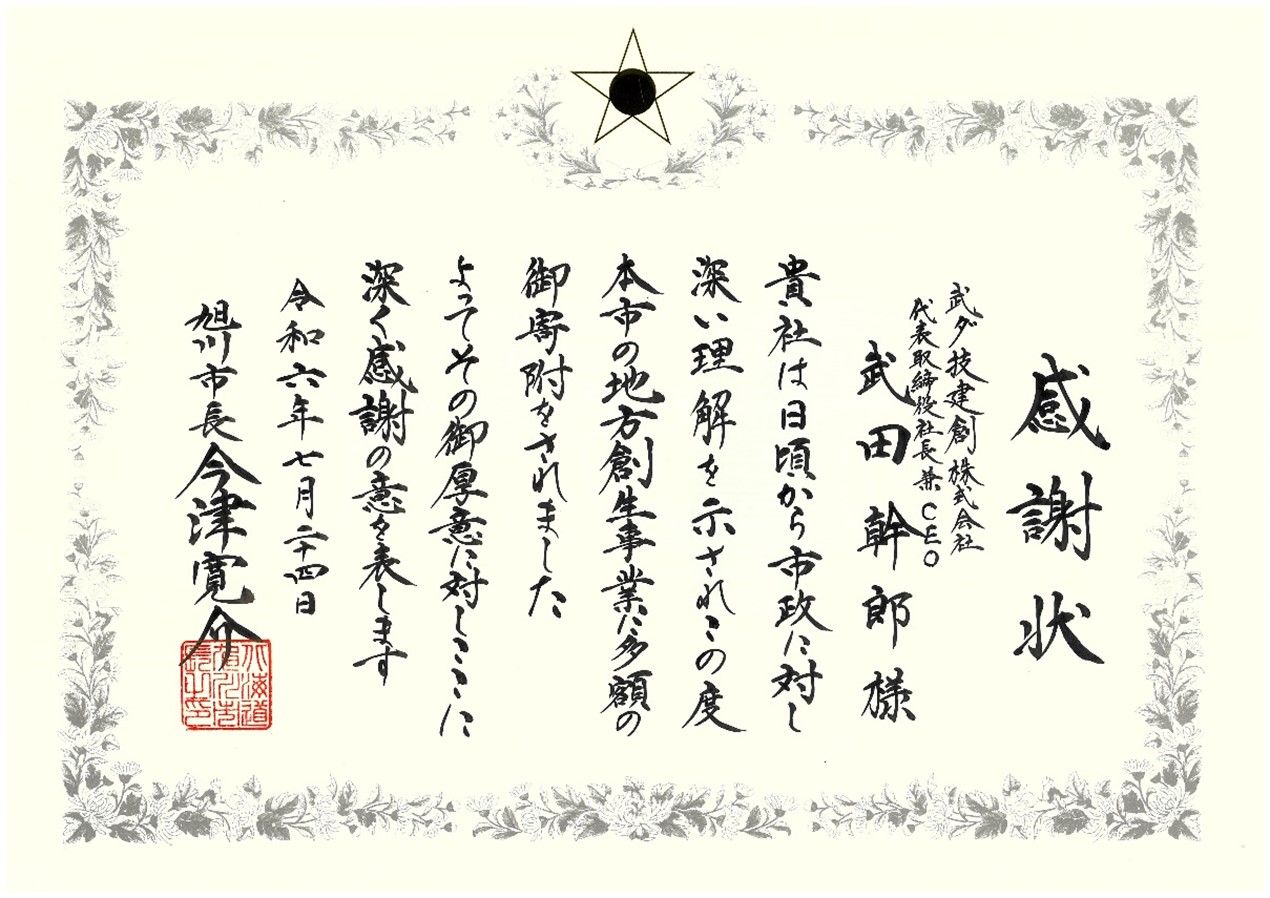 感謝状
武ダ技建創株式会社
代表取締役社長兼CEO
武田幹郎様
貴社は日頃から市政に対し
深い理解を示されこの度
本市の地方創生事業に多額の
御寄附をされました
よってその御厚意に対しここに
深く感謝の意を表します
令和六年七月二十四日
旭川市長今津寛介
北海道
旭川市
長之印